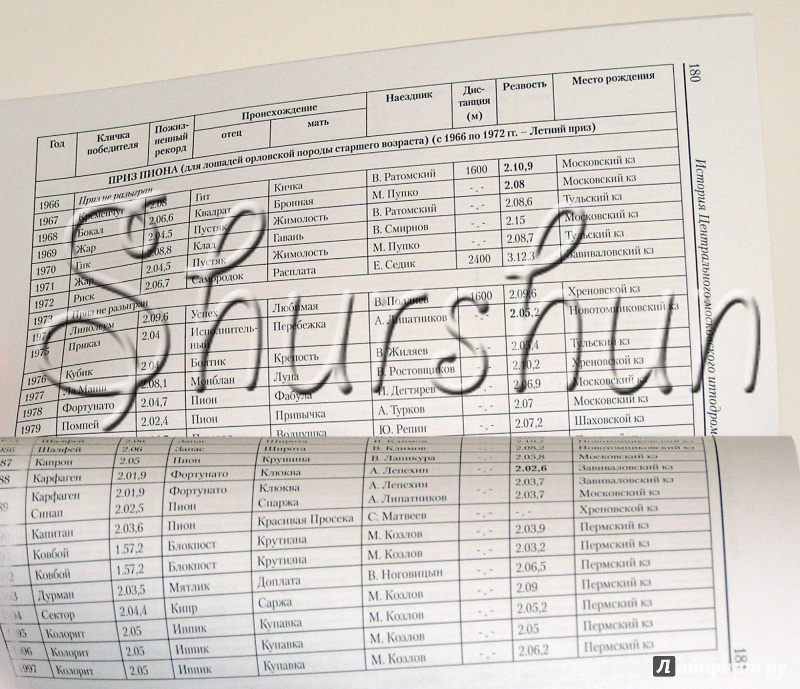 180
История Центрального московского ипподрома
Год Кличка победителя Пожиз-ненный рекорд Происхождение отец мать Наездник Дис-танция (м) Резвость Место рождения
ПРИЗ ПИОНА (для лошадей орловской породы старшего возраста) (с 1966 по 1972 гг. – Летний приз)
1966 Приз не разыгран
1967 Кременчуг 2.08 Гит Кичка В. Ратомский 1600 2.10,9 Московский кз
1968 Бокал 2.06,6 Квадрат Бронная М. Пупко -.- 2.08 Московский кз
1969 Жар 2.04,5 Пустяк Жимолость В. Ратомский -.- 2.08,6 Тульский кз
1970 Гик 2.08,8 Клад Гавань В. Смирнов -.- 2.15 Московский кз
1971 Жар 2.04,5 Пустяк Жимолость М. Пупко -.- 2.08,7 Тульский кз
1972 Риск 2.06,7 Самородок Расплата Е. Седик 2400 3.12,3 Завиваловский кз
1973 Приз не разыгран
Линолеум 2.09,6 Успех Любимая 1600 2.09,6 Хреновской кз
1975 Приказ 2.04 Исполнитель-ный Перебежка А. Липатников -.- 2.05,2 Новотомниковский кз
1976 Кубик Болтик Крепость В. Жиляев -.- Тульский кз
1977 Ла Манш 2.08,1 Монблан Луна В. Ростовщиков -.- 2.10,2 Хреновской кз
1978 Фортунато 2.04,7 Пион Фабула И. Дегтярев -.- 2.06,9 Московский кз
1979 Помпей 2.02,4 Пион Привычка А. Турков -.- 2.07 Московский кз
Ю. Репин -.- 2.07,2 Шаховской кз
986 Шалфей 2.06 Запас Широта В. Климов -.- 2.08,2 Новотомниковский кз
87 Капрон 2.05 Пион Крушина В. Лапикура -.- 2.05,8 Московский кз
88 Карфаген 2.01,9 Фортунато Клюква А. Лепехин -.- 2.02,6 Завиваловский кз
89 Карфаген 2.01,9 Фортунато Клюква А. Лепехин -.- 2.03,7 Завиваловский кз
Синап 2.02,5 Пион Спаржа А. Липатников -.- 2.03,7 Московский кз
Капитан 2.03,6 Пион Красивая Просека С. Матвеев -.- -.- Хреновской кз
Ковбой 1.57,2 Блокпост Крутизна М. Козлов -.- 2.03,9 Пермский кз
Ковбой 1.57,2 Блокпост Крутизна М. Козлов -.- 2.03,2 Пермский кз
Дурман 2.03,5 Мятлик Доплата В. Ноговицын -.- 2.06,5 Пермский кз
Сектор 2.04,4 Кипр Саржа М. Козлов -.- 2.09 Пермский кз
95 Колорит 2.05 Иппик Купавка М. Козлов -.- 2.05,2 Пермский кз
96 Колорит 2.05 Иппик Купавка М. Козлов -.- 2.05 Пермский кз
997 Колорит 2.05 Иппик Купавка М. Козлов -.- 2.06,2 Пермский кз
Shurshun
Лабиринт.ру